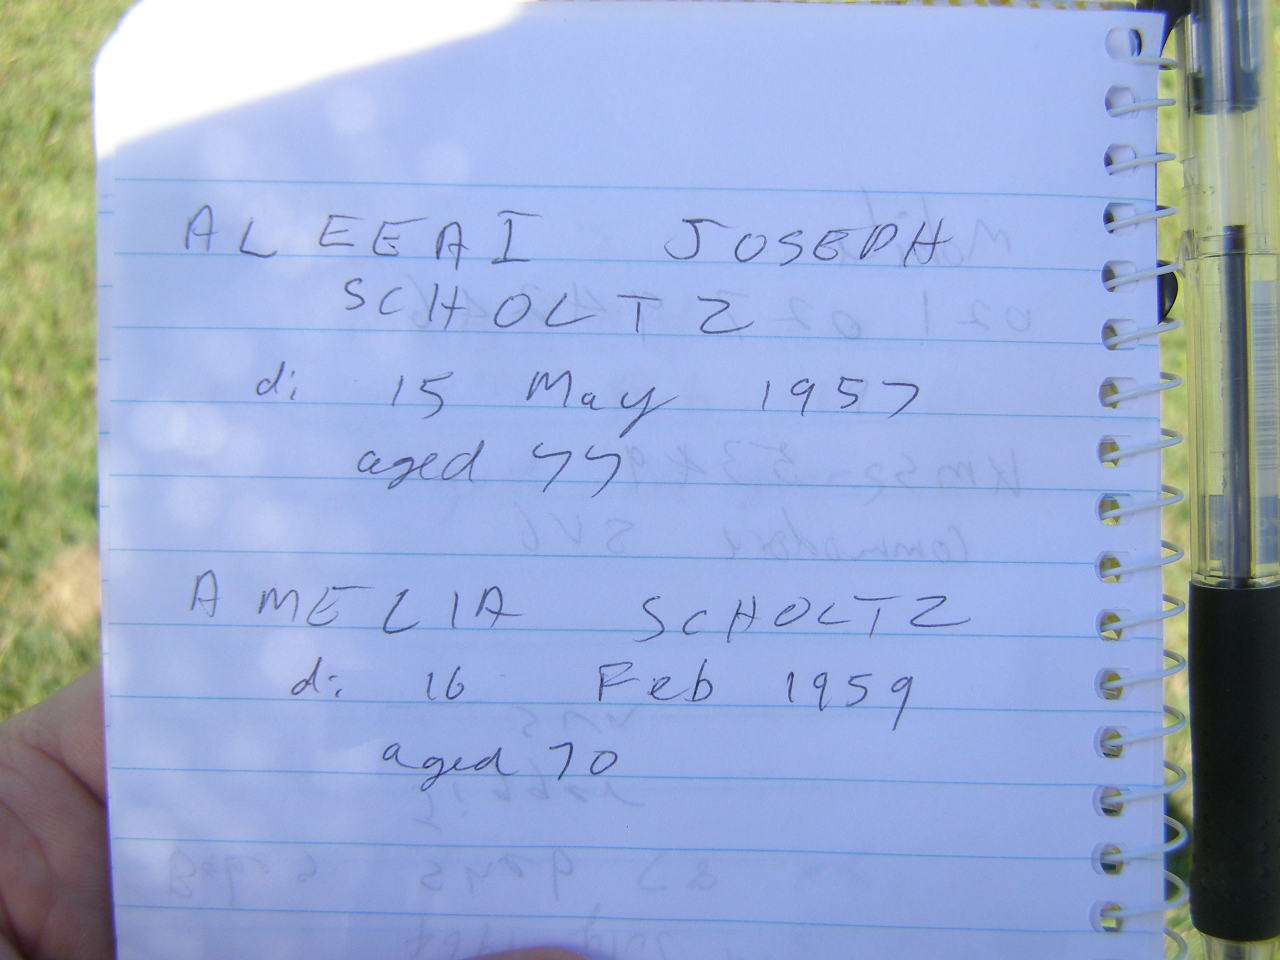 ALEEAI JOSEPH
SCHOLTZ
d: 15 May 1957
aged 77
AMELIA SCHOLTZ
d: 16 Feb 1959
aged 70